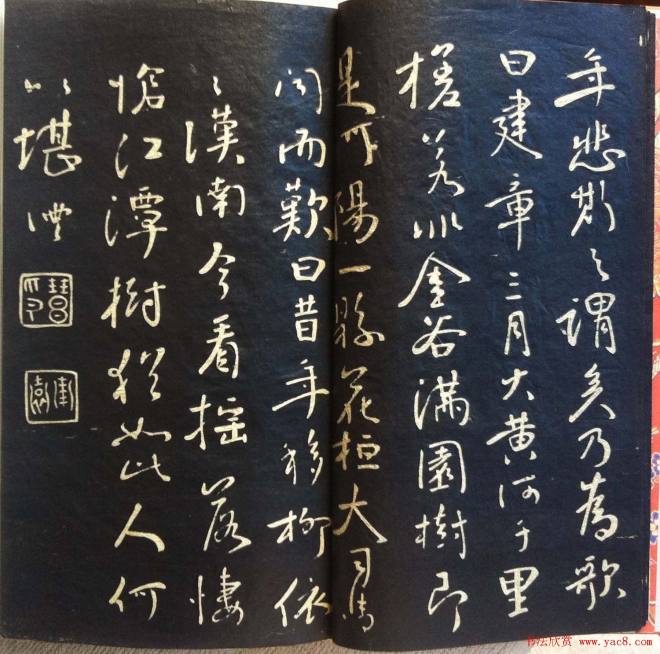 年悲斯之謂矣乃為歌
曰建章三月火黄河千里
槎若非金谷滿園樹即
是河陽一縣花桓大司馬
聞而歎曰昔年移柳依
〻漢南今看摇落悽
愴江潭樹猶如此人何
以堪
书法欣赏 www.yac8.com